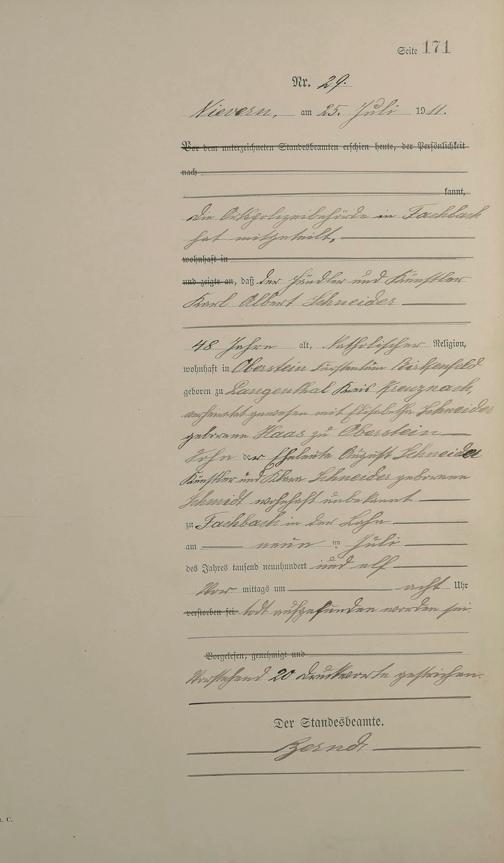 Seite 171
Nr. 29.
Nievern, am 25. Juli 1911.
Vor dem unterzeichneten Standesbeamten erschien heute, der Persönlichkeit
nach
kannt,
die Ortspolizeibehörde in Fachbach
hat mitgeteilt,
wohnhaft in
und zeigte an, daß der Händler und Künstler
Karl Albert Schneider
48 Jahre alt, katholischer Religion,
wohnhaft in Oberstein Fürstentum Birkenfeld
geboren zu Langenthal Kreis Kreuznach,
verheiratet gewesen mit Elisabetha Schneider
geborene Haas zu Oberstein
Sohn der Eheleute August Schneider
Künstler und Schneider geborene
Schmidt wohnhaft unbekannt
zu Fachbach in der Lahn
am neun ten Juli
des Jahres tausend neunhundert und elf
Vor mittags um acht Uhr
verstorben sei todt aufgefunden worden sei
Vorgelesen, genehmigt und
Vorstehend 20 Druckworte gestrichen.
Der Standesbeamte.
C.